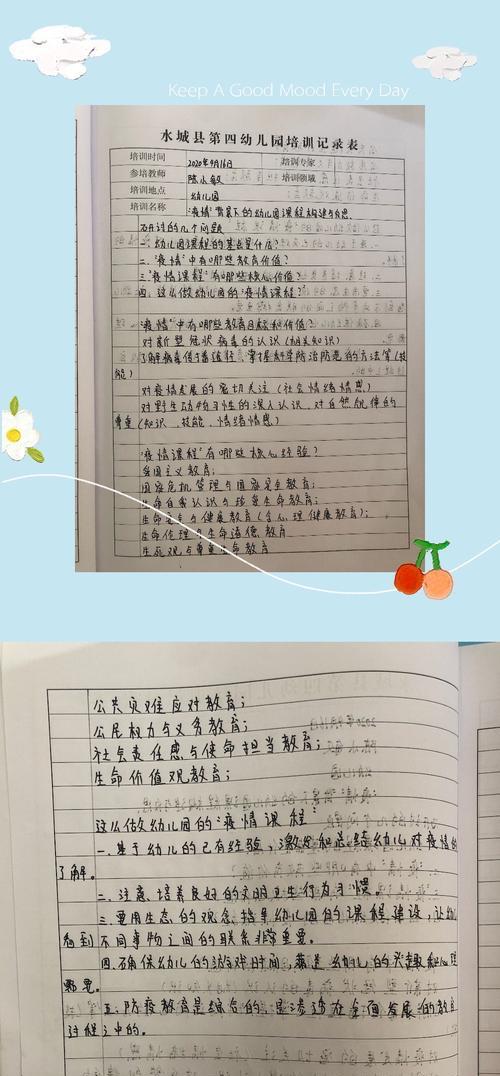 Keep A Good Mood Every Day
水城县第四幼儿园培训记录表
培训时间 2020年9月16日 培训专家
参培教师 陈永敏 培训领域
培训地点 幼儿园
培训名称 "疫情"背景下的幼儿园课程构建与反思
研讨的几个问题
一、幼儿园课程的基点是什么?
二、"疫情"中有哪些教育价值?
三、"疫情课程"有哪些核心价值?
四、这么做幼儿园的"疫情课程?
"疫情"中有哪些教育目标和价值?
对新型冠状病毒的认识(相关知识)
了解病毒传播途径,掌握科学防治防范的方法等(技
能)
对疫情发展的密切关注(社会情绪情感)
对野生动物习性的深入认识,对自然规律的
尊重(知识、技能、情绪情感)
"疫情课程"有哪些核心经验?
爱国主义教育;
国家危机管理与国家安全教育;
生命自我认识与珍爱生命教育;
生命安全与健康教育(含心理健康教育);
生命伦理与生命道德教育
生死观与尊重生命教育
公共灾难应对教育;
公民权力与义务教育;
社会责任感与使命担当教育;
生命价值观教育;
这么做幼儿园的"疫情课程"
一、基于幼儿的已有经验,激发和总结幼儿对疫情的
了解。
二、注意、培养良好的文明卫生行为习惯。
三、要用生态的观念指导幼儿园的课程建设,让幼
看到不同事物之间的联系非常重要。
四、确保幼儿的游戏时间,满足幼儿的兴趣和心理
需要。
五、防疫教育是综合的,是渗透在全面发展的教育
过程之中的。